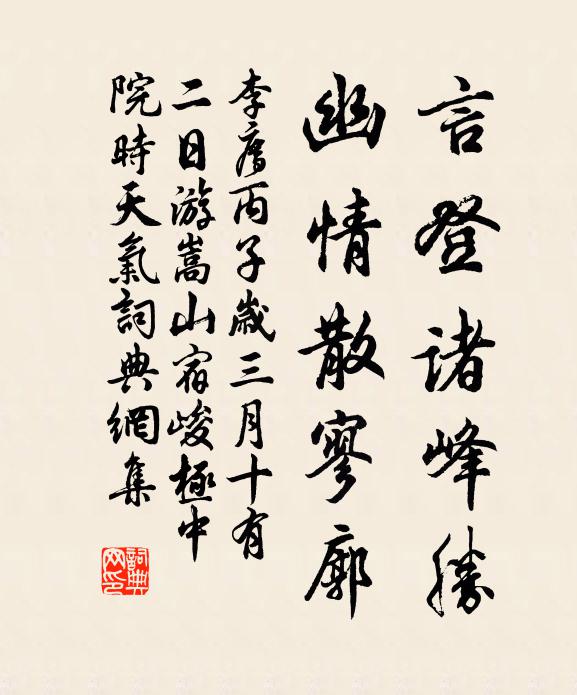 言登諸峰勝
幽情散寥廓
李廌丙子歲三月十有
二日游嵩山宿峻極中
院時天氣詞典網集
詞典網印